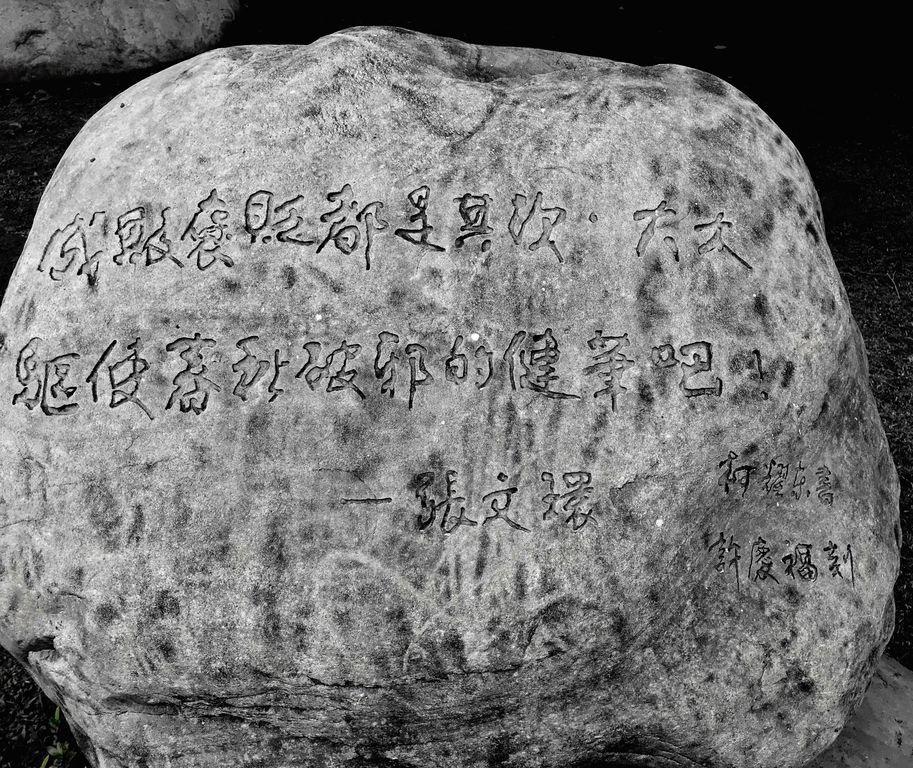 成敗褒貶都是其次·大大
驅使春秋破邪的健筆吧!
—張文環
柯耀東書
許慶福刻